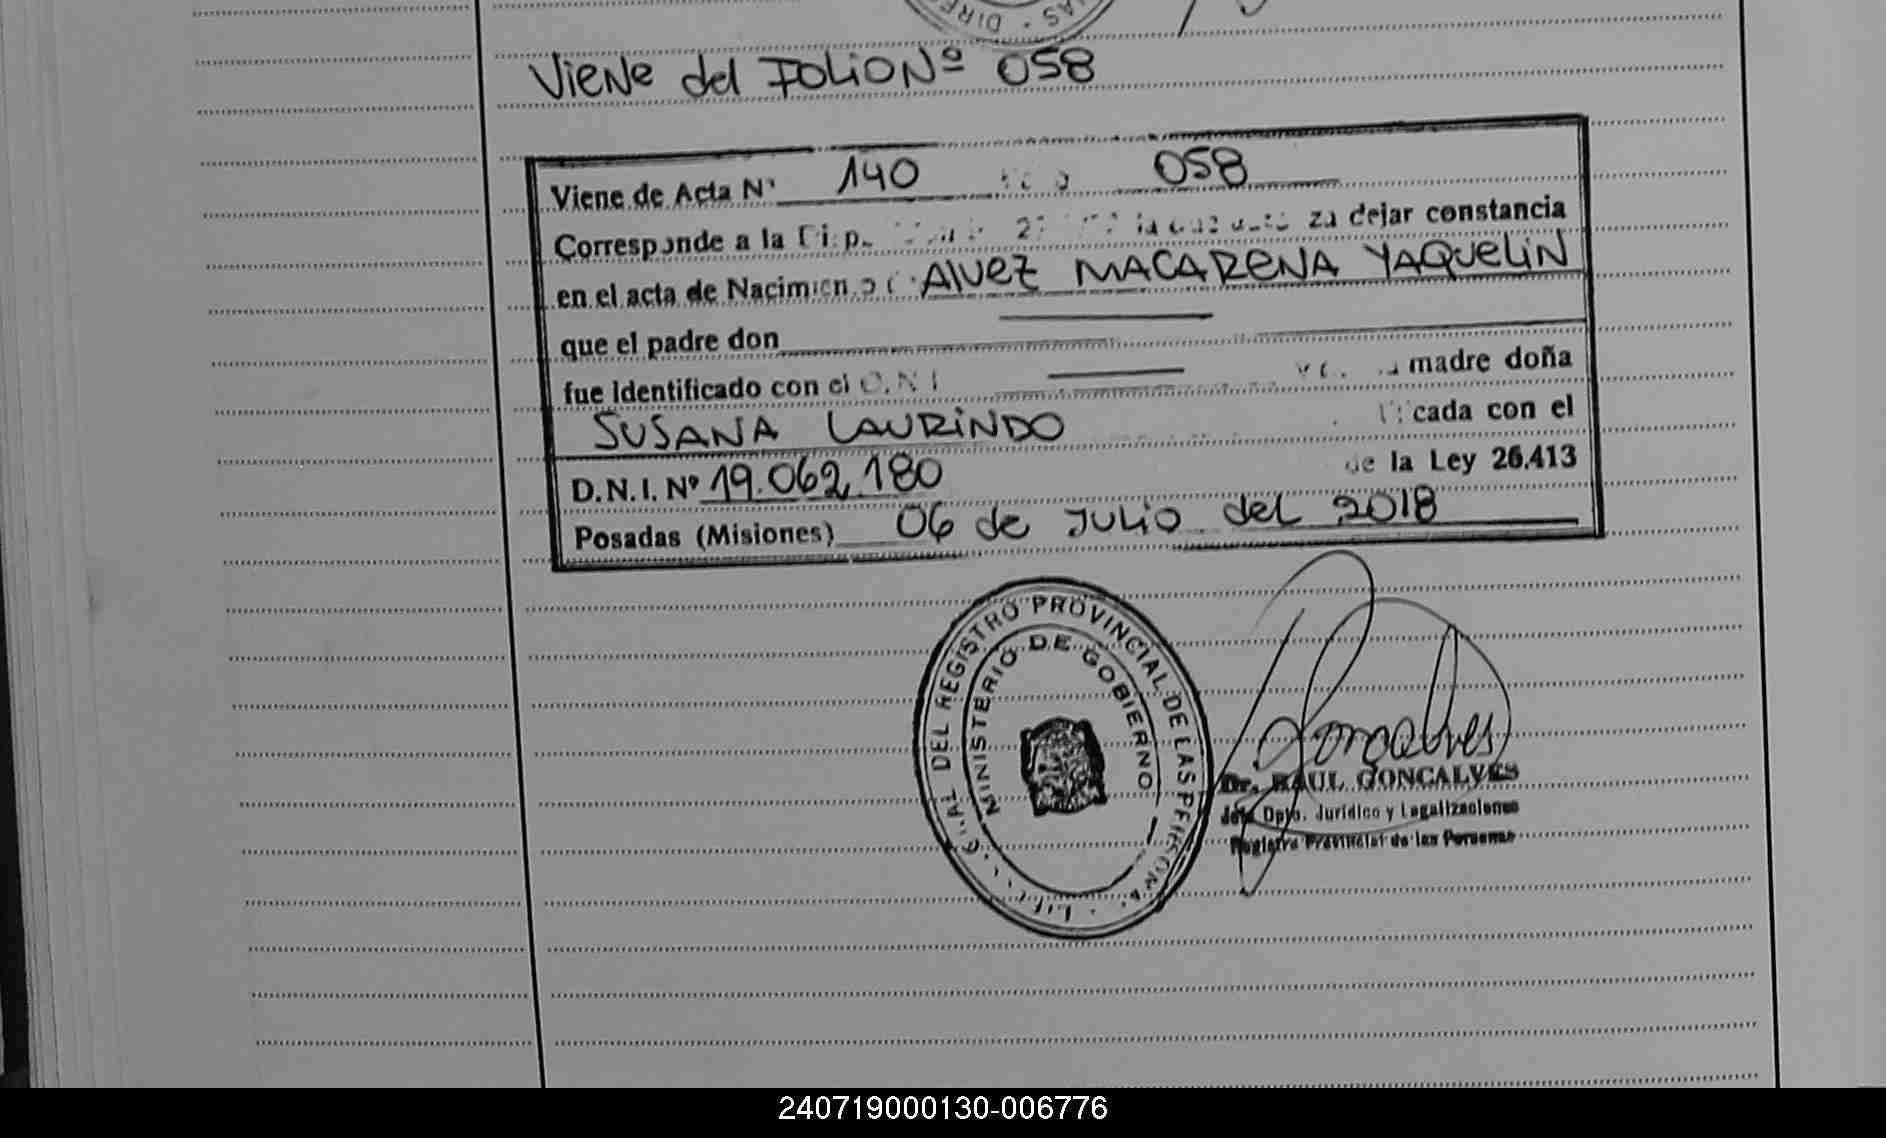 DIRE
Viene del FOLIO Nº 058
Viene de Acta Nº 140 058
Corresponde a la za dejar constancia
en el acta de Nacimien o Alvez MACARENA YAQUELIN
que el padre don
fue Identificado con el D.N.I. madre doña
SUSANA LAURINDO cada con el
D.N.I. Nº 19.062.180 de la Ley 26.413
Posadas (Misiones) 06 de JULIO del 2018
DEL REGISTRO PROVINCIAL DE LAS PERSONAS
MINISTERIO DE GOBIERNO
Goncalves
Dr. RAUL GONCALVES
Jefe Dpto. Jurídico y Legalizaciones
Registro Provincial de las Personas
240719000130-006776